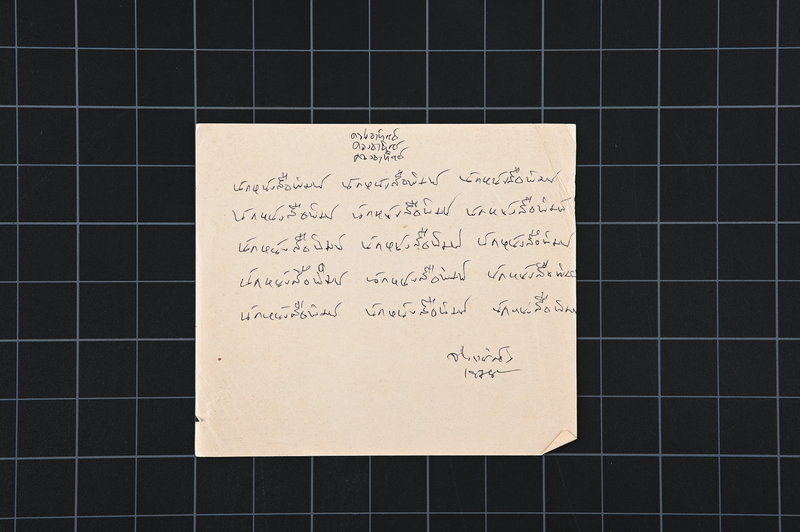 ดวงอาทิตย์
ดวงอาทิตย์
ดวงอาทิตย์
นักหนังสือพิมพ์ นักหนังสือพิมพ์ นักหนังสือพิมพ์
นักหนังสือพิมพ์ นักหนังสือพิมพ์ นักหนังสือพิมพ์
นักหนังสือพิมพ์ นักหนังสือพิมพ์ นักหนังสือพิมพ์
นักหนังสือพิมพ์ นักหนังสือพิมพ์ นักหนังสือพิมพ์
นักหนังสือพิมพ์ นักหนังสือพิมพ์ นักหนังสือพิมพ์